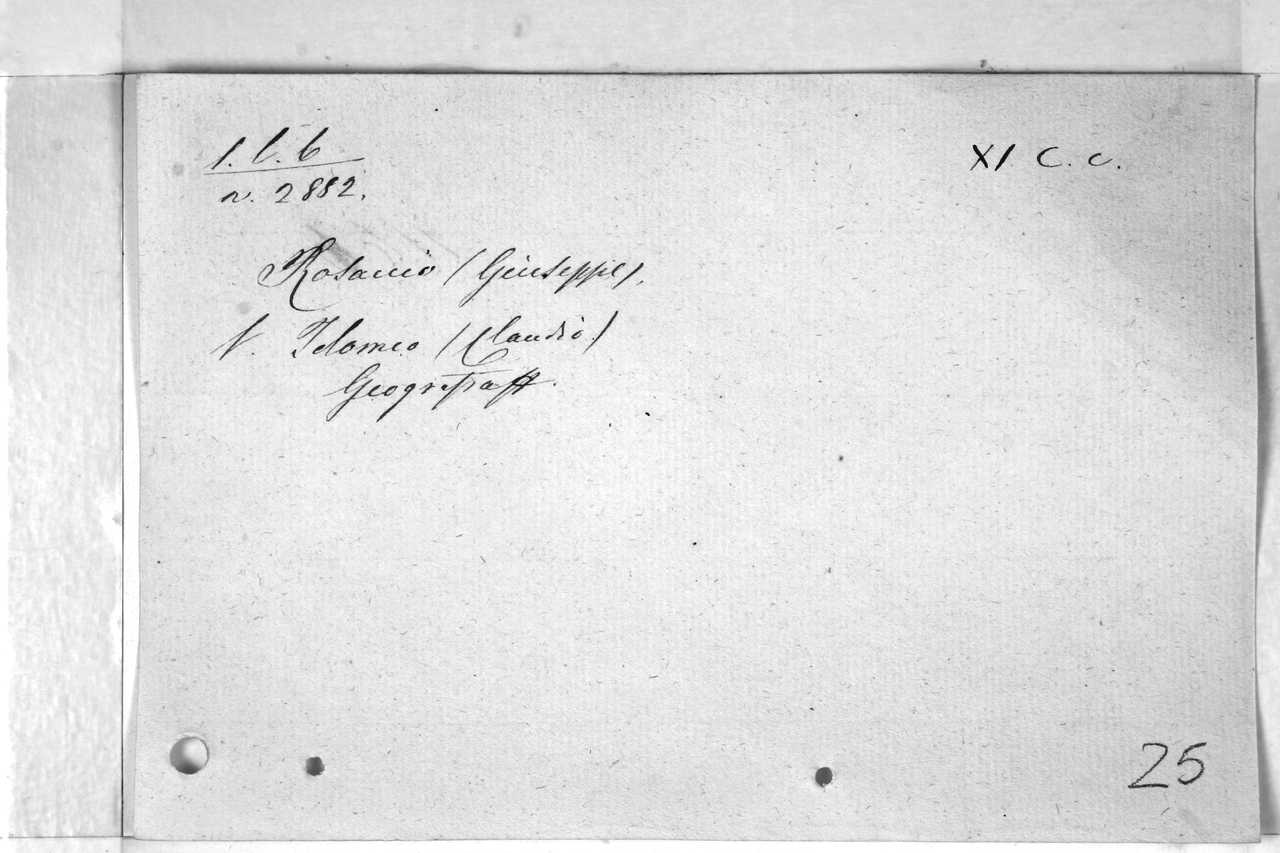 1. C. 6
XI C. c.
n. 2882.
Rosaccio (Giuseppe),
V. Tolomeo (Claudio)
25